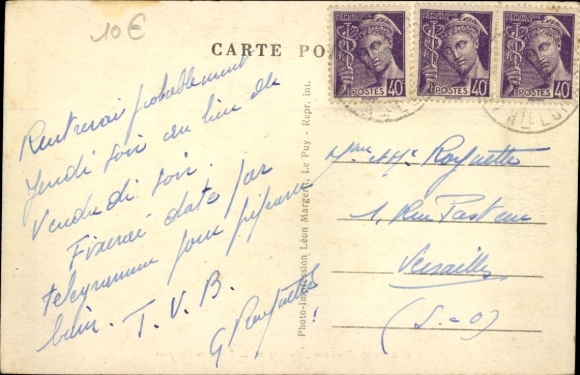 10€
CARTE PO
RÉPUBLIQUE FRANÇAISE
POSTES 40c
RÉPUBLIQUE FRANÇAISE
POSTES 40c
RÉPUBLIQUE FRANÇAISE
POSTES 40c
Rentrerai probablement
Jeudi soir au lieu de
Vendredi soir.
Fixerai date par
telegramme pour préparer
bain. T. V. B.
G
Photo-Impression Léon Margerit, Le Puy - Repr. int.
Mme
1, Rue Pasteur
Versailles
(S.-O)